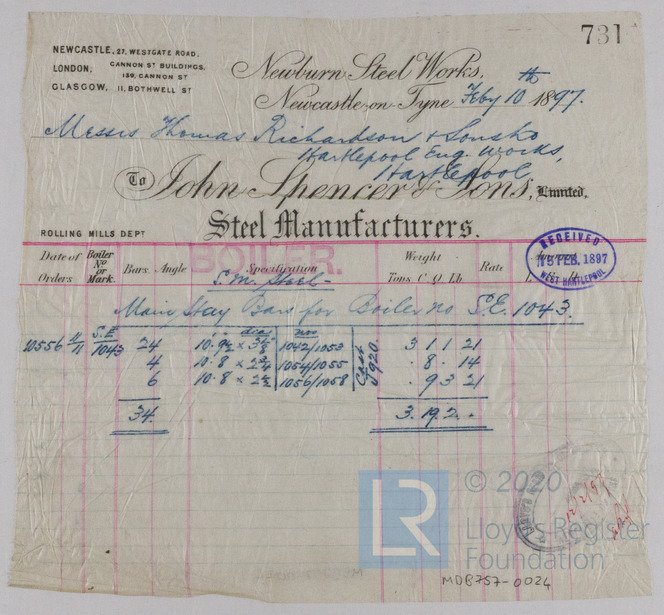 731
NEWCASTLE, 27, WESTGATE ROAD.
LONDON, CANNON ST BUILDINGS,
139, CANNON ST
GLASGOW, 11, BOTHWELL ST
Newburn Steel Works.
Newcastle-on-Tyne Feby 10th 1897.
Messrs Thomas Richardson & Sons
Hartlepool Eng. Works,
Hartlepool
To John Spencer & Sons, Limited.
Steel Manufacturers.
ROLLING MILLS DEPT
BOILER.
RECEIVED
FEB. 1897
WEST HARTLEPOOL
Date of Orders Boiler No or Mark. Bars. Angle Specification Weight Tons. C. Q. Lb Rate
S.M. Steel
Main Stay Bars for Boiler no. S.E. 1043.
S.E. dias nos
10556 11/11 1043 24 1042/1053 3 1 1 21
4 1054/1055 . 8 . 14
6 1056/1058 . 9 3 21
Cast 5920
34. 3. 19. 2. -
12/2/97
LR
© 2020
Lloyd's Register
Foundation
MDB757-0024